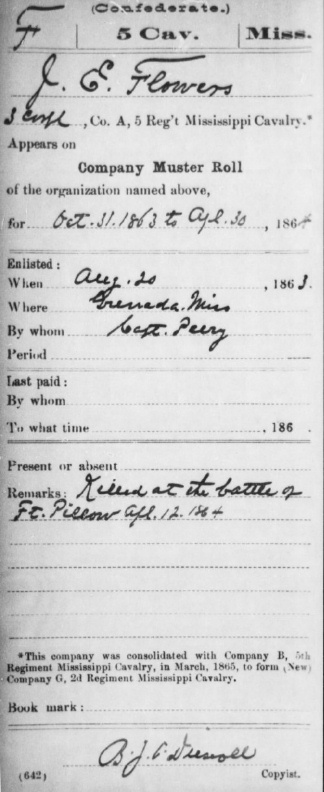 (Confederate.)
F | 5 Cav. | Miss.
J. E. Flowers
3 Corpl, Co. A, 5 Reg't Mississippi Cavalry.*
Appears on
Company Muster Roll
of the organization named above,
for Oct. 31. 1863 to Apl. 30, 1864
Enlisted:
When Aug. 20, 1863.
Where Grenada, Miss
By whom Capt. Peery
Period
Last paid:
By whom
To what time , 186 .
Present or absent
Remarks: Killed at the battle of
Ft. Pillow Apl. 12. 1864
*This company was consolidated with Company B, 5th
Regiment Mississippi Cavalry, in March, 1865, to form (New)
Company G, 2d Regiment Mississippi Cavalry.
Book mark:
B. J.
(642) Copyist.